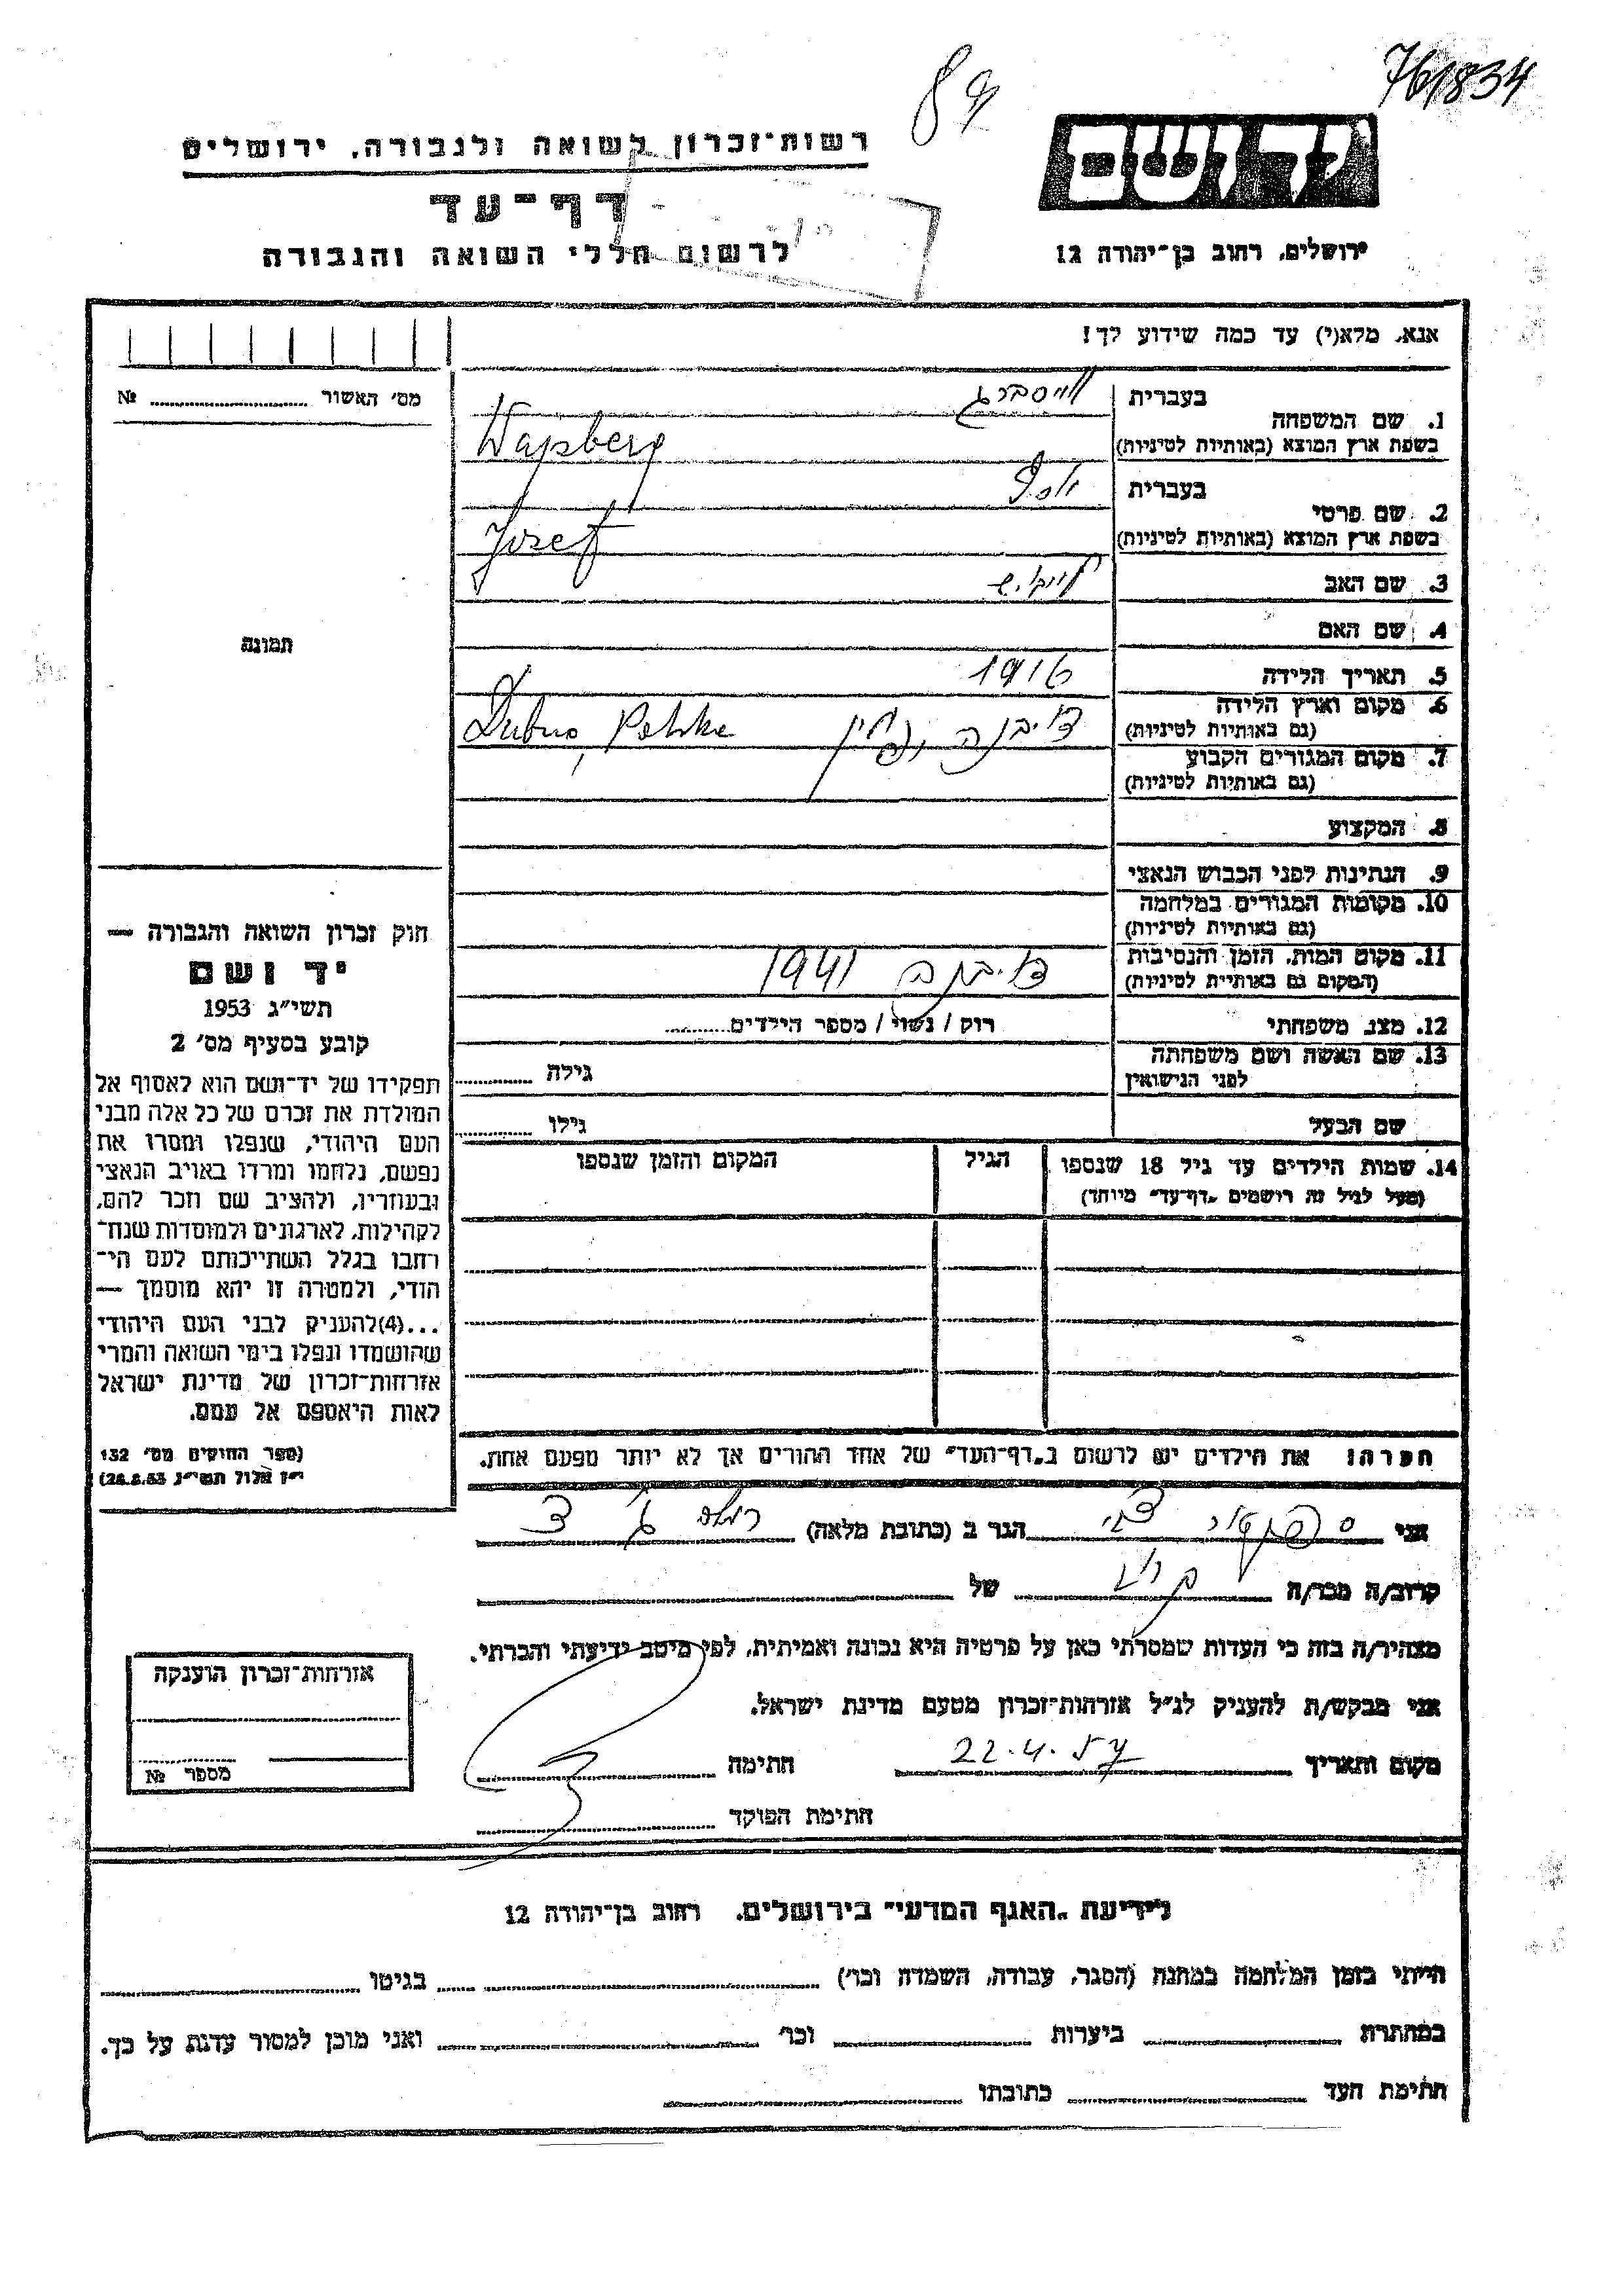 761834
89
יד ושם
ירושלים, רחוב בן־יהודה 12
רשות־זכרון לשואה ולגבורה, ירושלים
דף־עד
לרשום חללי השואה והגבורה
אנא, מלא(י) עד כמה שידוע לך!
מס׳ האשור № 
1. שם המשפחה
בעברית וייסברג
בשפת ארץ המוצא (באותיות לטיניות) Wajsberg
2. שם פרטי
בעברית יוסף
בשפת ארץ המוצא (באותיות לטיניות) Jozef
3. שם האב לייביש
4. שם האם
5. תאריך הלידה 1916
6. מקום וארץ הלידה
(גם באותיות לטיניות) דובנה, פולין Dubno, Polska
7. מקום המגורים הקבוע
(גם באותיות לטיניות)
8. המקצוע
9. הנתינות לפני הכבוש הנאצי
10. מקומות המגורים במלחמה
(גם באותיות לטיניות)
11. מקום המות, הזמן והנסיבות
(המקום גם באותיות לטיניות) דובנה 1941
12. מצב משפחתי רוק / נשוי / מספר הילדים
13. שם האשה ושם משפחתה
לפני הנישואין גילה
שם הבעל גילו
14. שמות הילדים עד גיל 18 שנספו הגיל המקום והזמן שנספו
(מעל לגיל זה רושמים „דף־עד״ מיוחד)
תמונה
חוק זכרון השואה והגבורה —
יד ושם
תשי״ג 1953
קובע בסעיף מס׳ 2
תפקידו של יד־ושם הוא לאסוף אל
המולדת את זכרם של כל אלה מבני
העם היהודי, שנפלו ומסרו את
נפשם, נלחמו ומרדו באויב הנאצי
ובעוזריו, ולהציב שם וזכר להם,
לקהילות, לארגונים ולמוסדות שנח־
רחבו בגלל השתייכותם לעם הי־
הודי, ולמטרה זו יהא מוסמך —
...(4)להעניק לבני העם היהודי
שהושמדו ונפלו בימי השואה והמרי
אזרחות־זכרון של מדינת ישראל
לאות היאספם אל עמם.
(ספר החוקים מס׳ 132
י״ז אלול תשי״ג 28.8.53)
הערה: את הילדים יש לרשום ב„דף־העד״ של אחד ההורים אך לא יותר מפעם אחת.
אני הגר ב (כתובת מלאה)
קרוב/ה מכר/ה של
מצהיר/ה בזה כי העדות שמסרתי כאן על פרטיה היא נכונה ואמיתית, לפי מיטב ידיעתי והכרתי.
אני מבקש/ת להעניק לנ״ל אזרחות־זכרון מטעם מדינת ישראל.
מקום ותאריך 22.4.57 חתימה
חתימת הפוקד
אזרחות־זכרון הוענקה
מספר №
לידיעת „האגף המדעי״ בירושלים, רחוב בן־יהודה 12
הייתי בזמן המלחמה במחנה (הסגר, עבודה, השמדה וכו׳) בגיטו
במחתרת ביערות וכו׳ ואני מוכן למסור עדות על כך.
חתימת העד כתובתו